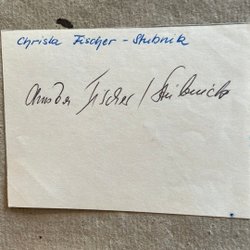 Christa Fischer - Stubnick
Christa Fischer / Stubnick